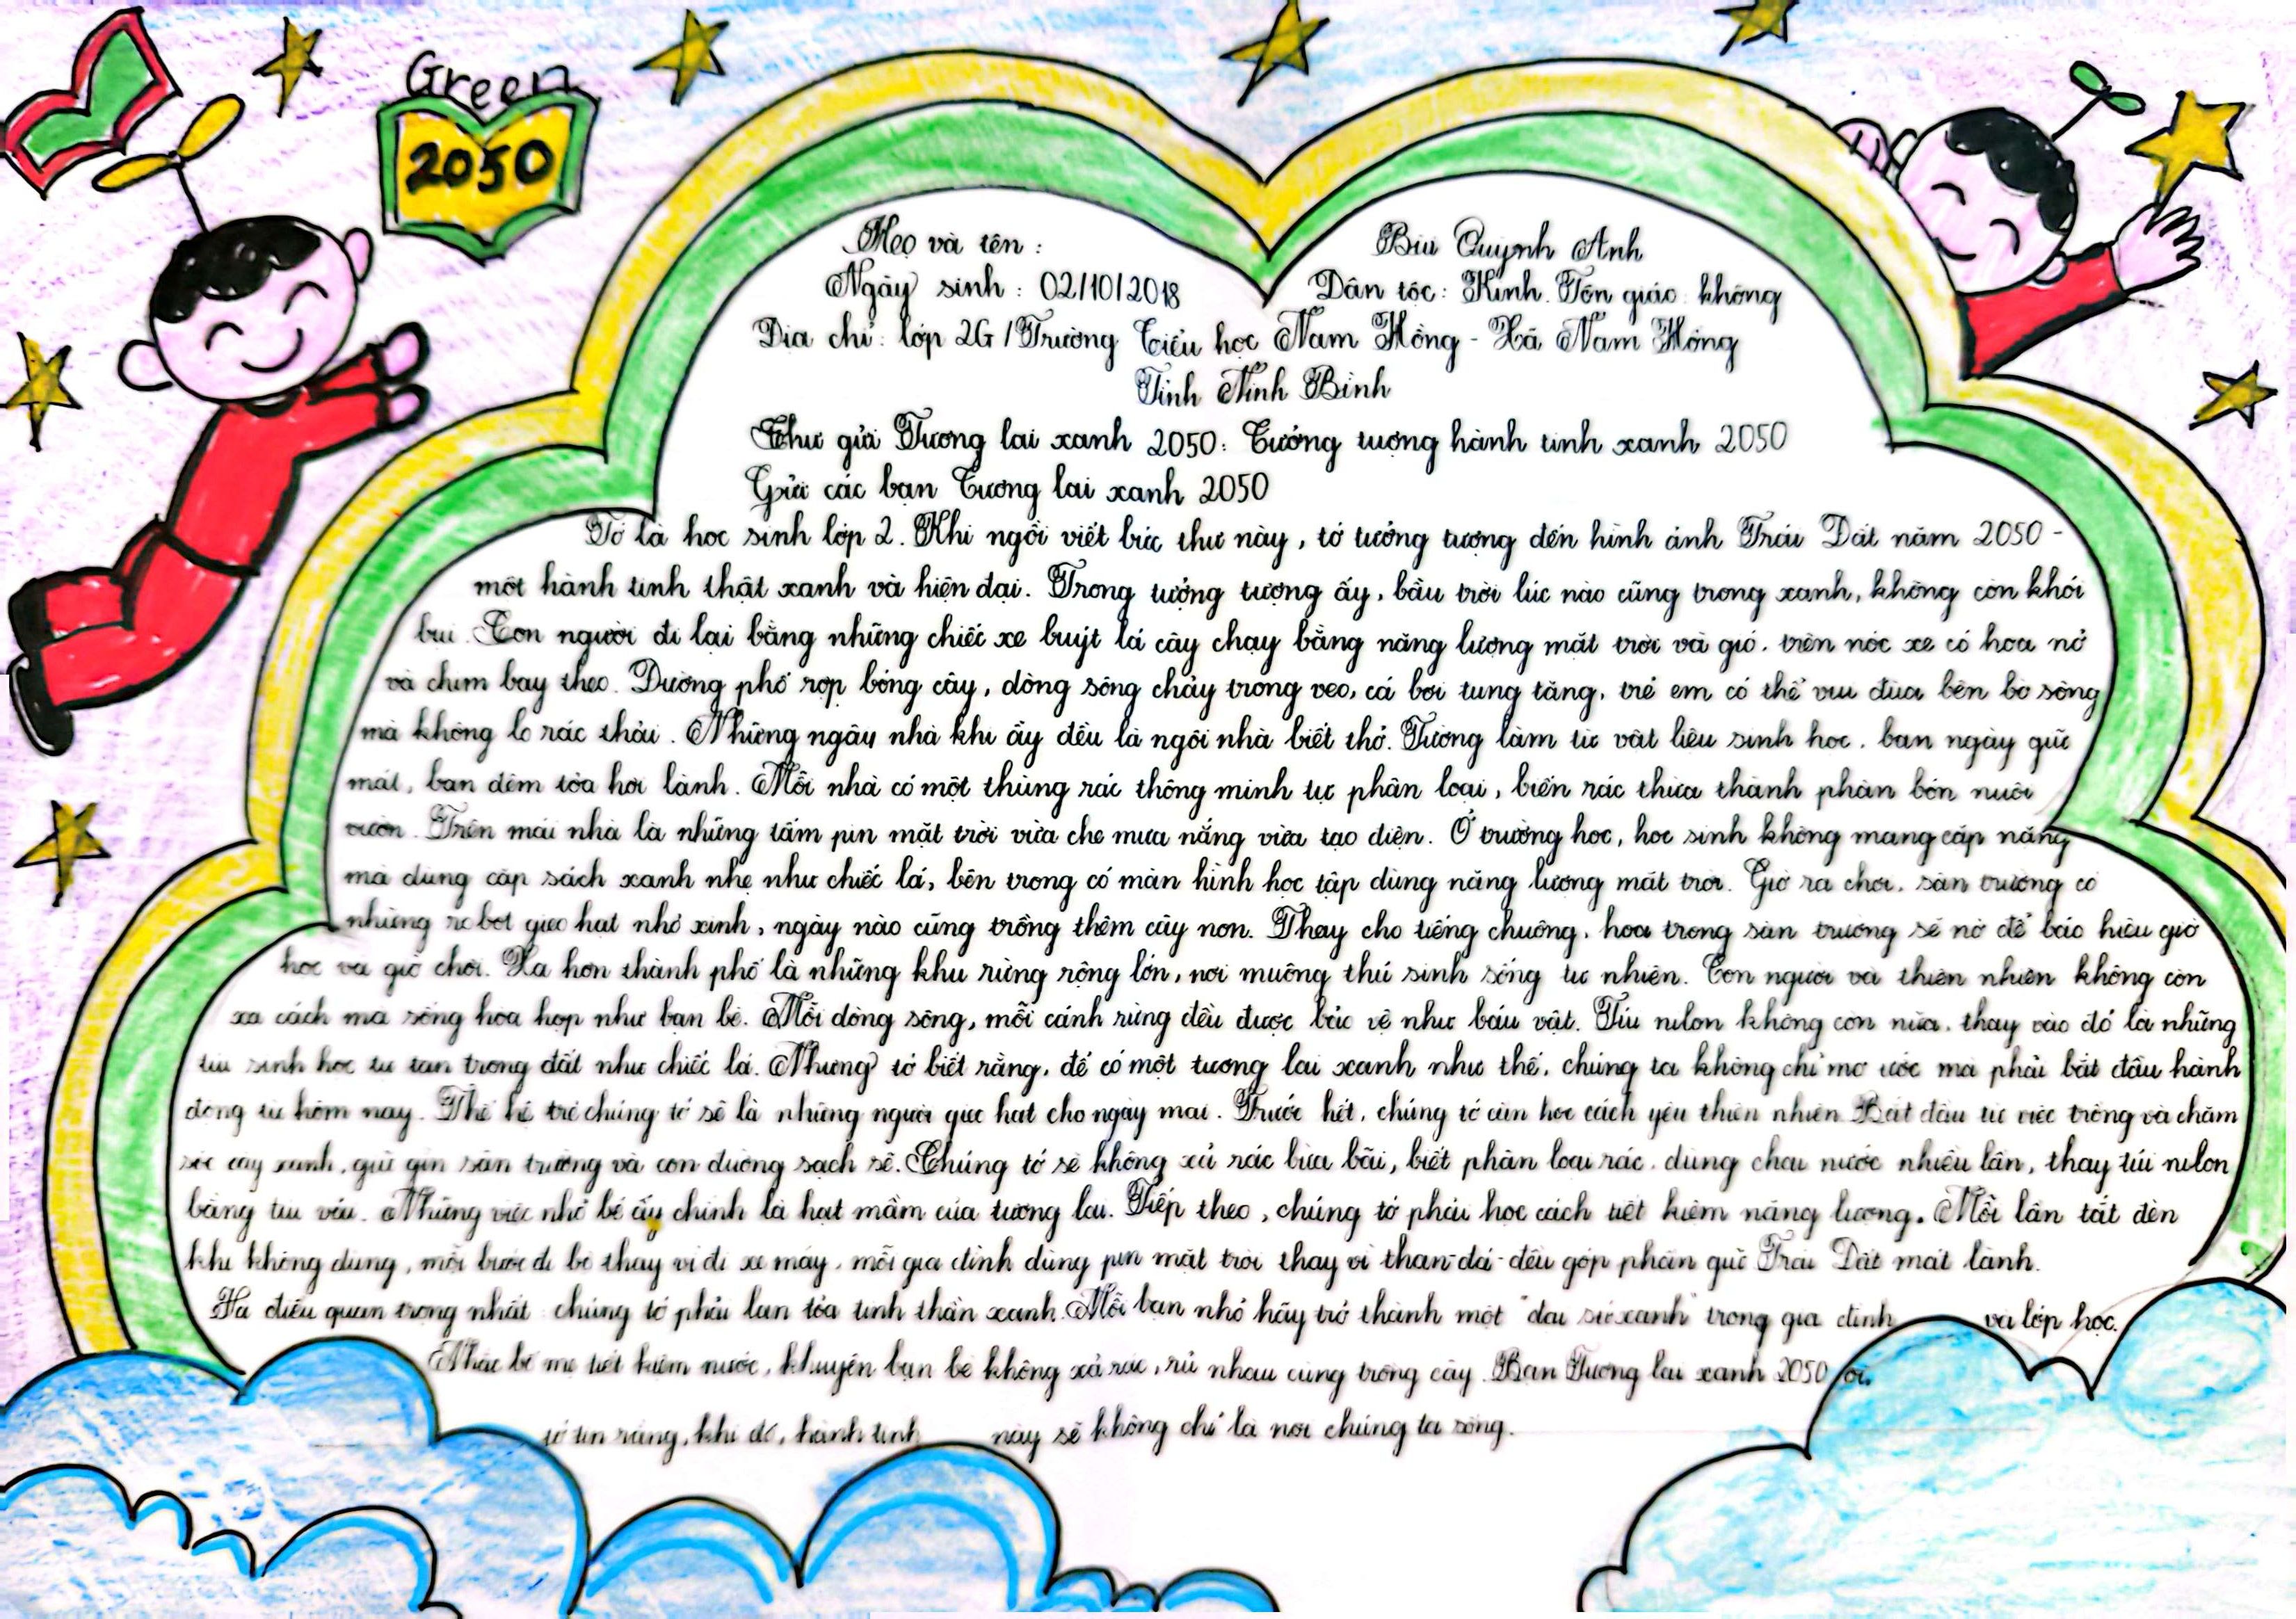 Green
2050
Họ và tên : Bùi Quỳnh Anh
Ngày sinh : 02/10/2018 Dân tộc : Kinh. Tôn giáo : không
Địa chỉ : lớp 2G / Trường Tiểu học Nam Hồng - Xã Nam Hồng
Tỉnh Ninh Bình
Thư gửi Tương lai xanh 2050: Tưởng tượng hành tinh xanh 2050
Gửi các bạn Tương lai xanh 2050
Tớ là học sinh lớp 2. Khi ngồi viết bức thư này, tớ tưởng tượng đến hình ảnh Trái Đất năm 2050 -
một hành tinh thật xanh và hiện đại. Trong tưởng tượng ấy, bầu trời lúc nào cũng trong xanh, không còn khói
bụi. Con người đi lại bằng những chiếc xe buýt lá cây chạy bằng năng lượng mặt trời và gió, trên nóc xe có hoa nở
và chim bay theo. Đường phố rợp bóng cây, dòng sông chảy trong veo, cá bơi tung tăng, trẻ em có thể vui đùa bên bờ sông
mà không lo rác thải. Những ngày nhà khi ấy đều là ngôi nhà biết thở. Tường làm từ vật liệu sinh học, ban ngày giữ
mát, ban đêm tỏa hơi lành. Mỗi nhà có một thùng rác thông minh tự phân loại, biến rác thừa thành phân bón nuôi
vườn. Trên mái nhà là những tấm pin mặt trời vừa che mưa nắng vừa tạo điện. Ở trường học, học sinh không mang cặp nặng
mà dùng cặp sách xanh nhẹ như chiếc lá, bên trong có màn hình học tập dùng năng lượng mặt trời. Giờ ra chơi, sân trường có
những robot gieo hạt nhỏ xinh, ngày nào cũng trồng thêm cây non. Thay cho tiếng chuông, hoa trong sân trường sẽ nở để báo hiệu giờ
học và giờ chơi. Xa hơn thành phố là những khu rừng rộng lớn, nơi muông thú sinh sống tự nhiên. Con người và thiên nhiên không còn
xa cách mà sống hòa hợp như bạn bè. Mỗi dòng sông, mỗi cánh rừng đều được bảo vệ như báu vật. Túi nilon không còn nữa, thay vào đó là những
túi sinh học tự tan trong đất như chiếc lá. Nhưng tớ biết rằng, để có một tương lai xanh như thế, chúng ta không chỉ mơ ước mà phải bắt đầu hành
động từ hôm nay. Thế hệ trẻ chúng tớ sẽ là những người gieo hạt cho ngày mai. Trước hết, chúng tớ cần học cách yêu thiên nhiên. Bắt đầu từ việc trồng và chăm
sóc cây xanh, giữ gìn sân trường và con đường sạch sẽ. Chúng tớ sẽ không xả rác bừa bãi, biết phân loại rác, dùng chai nước nhiều lần, thay túi nilon
bằng túi vải. Những việc nhỏ bé ấy chính là hạt mầm của tương lai. Tiếp theo, chúng tớ phải học cách tiết kiệm năng lượng. Mỗi lần tắt đèn
khi không dùng, mỗi bước đi bộ thay vì đi xe máy, mỗi gia đình dùng pin mặt trời thay vì than đá - đều góp phần giữ Trái Đất mát lành.
Và điều quan trọng nhất chúng tớ phải lan tỏa tinh thần xanh. Mỗi bạn nhỏ hãy trở thành một "đại sứ xanh" trong gia đình và lớp học.
Nhắc bố mẹ tiết kiệm nước, khuyên bạn bè không xả rác, rủ nhau cùng trồng cây. Bạn Tương lai xanh 2050 ơi,
tớ tin rằng, khi đó, hành tinh này sẽ không chỉ là nơi chúng ta sống.